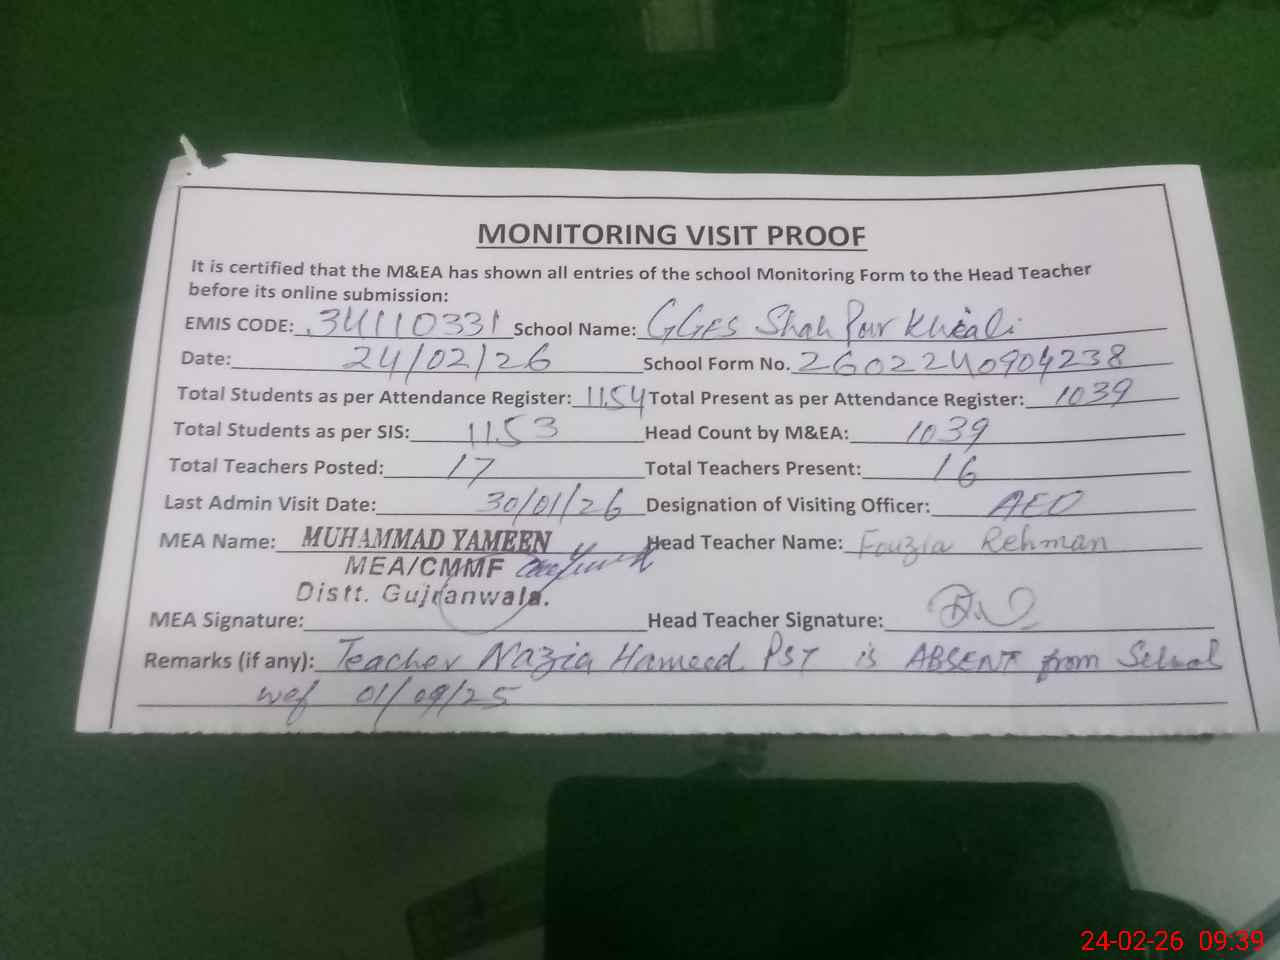 MONITORING VISIT PROOF
It is certified that the M&EA has shown all entries of the school Monitoring Form to the Head Teacher
before its online submission:
EMIS CODE: 34110331 School Name: GGES Shah Pur Khiali
Date: 24/02/26 School Form No. 2602240904238
Total Students as per Attendance Register: 1154 Total Present as per Attendance Register: 1039
Total Students as per SIS: 1153 Head Count by M&EA: 1039
Total Teachers Posted: 17 Total Teachers Present: 16
Last Admin Visit Date: 30/01/26 Designation of Visiting Officer: AEO
MEA Name: MUHAMMAD YAMEEN Head Teacher Name: Fouzia Rehman
MEA/CMMF
Distt. Gujranwala.
MEA Signature: Head Teacher Signature:
Remarks (if any): Teacher Nazia Hameed PST is ABSENT from School
wef 01/09/25
24-02-26 09:39